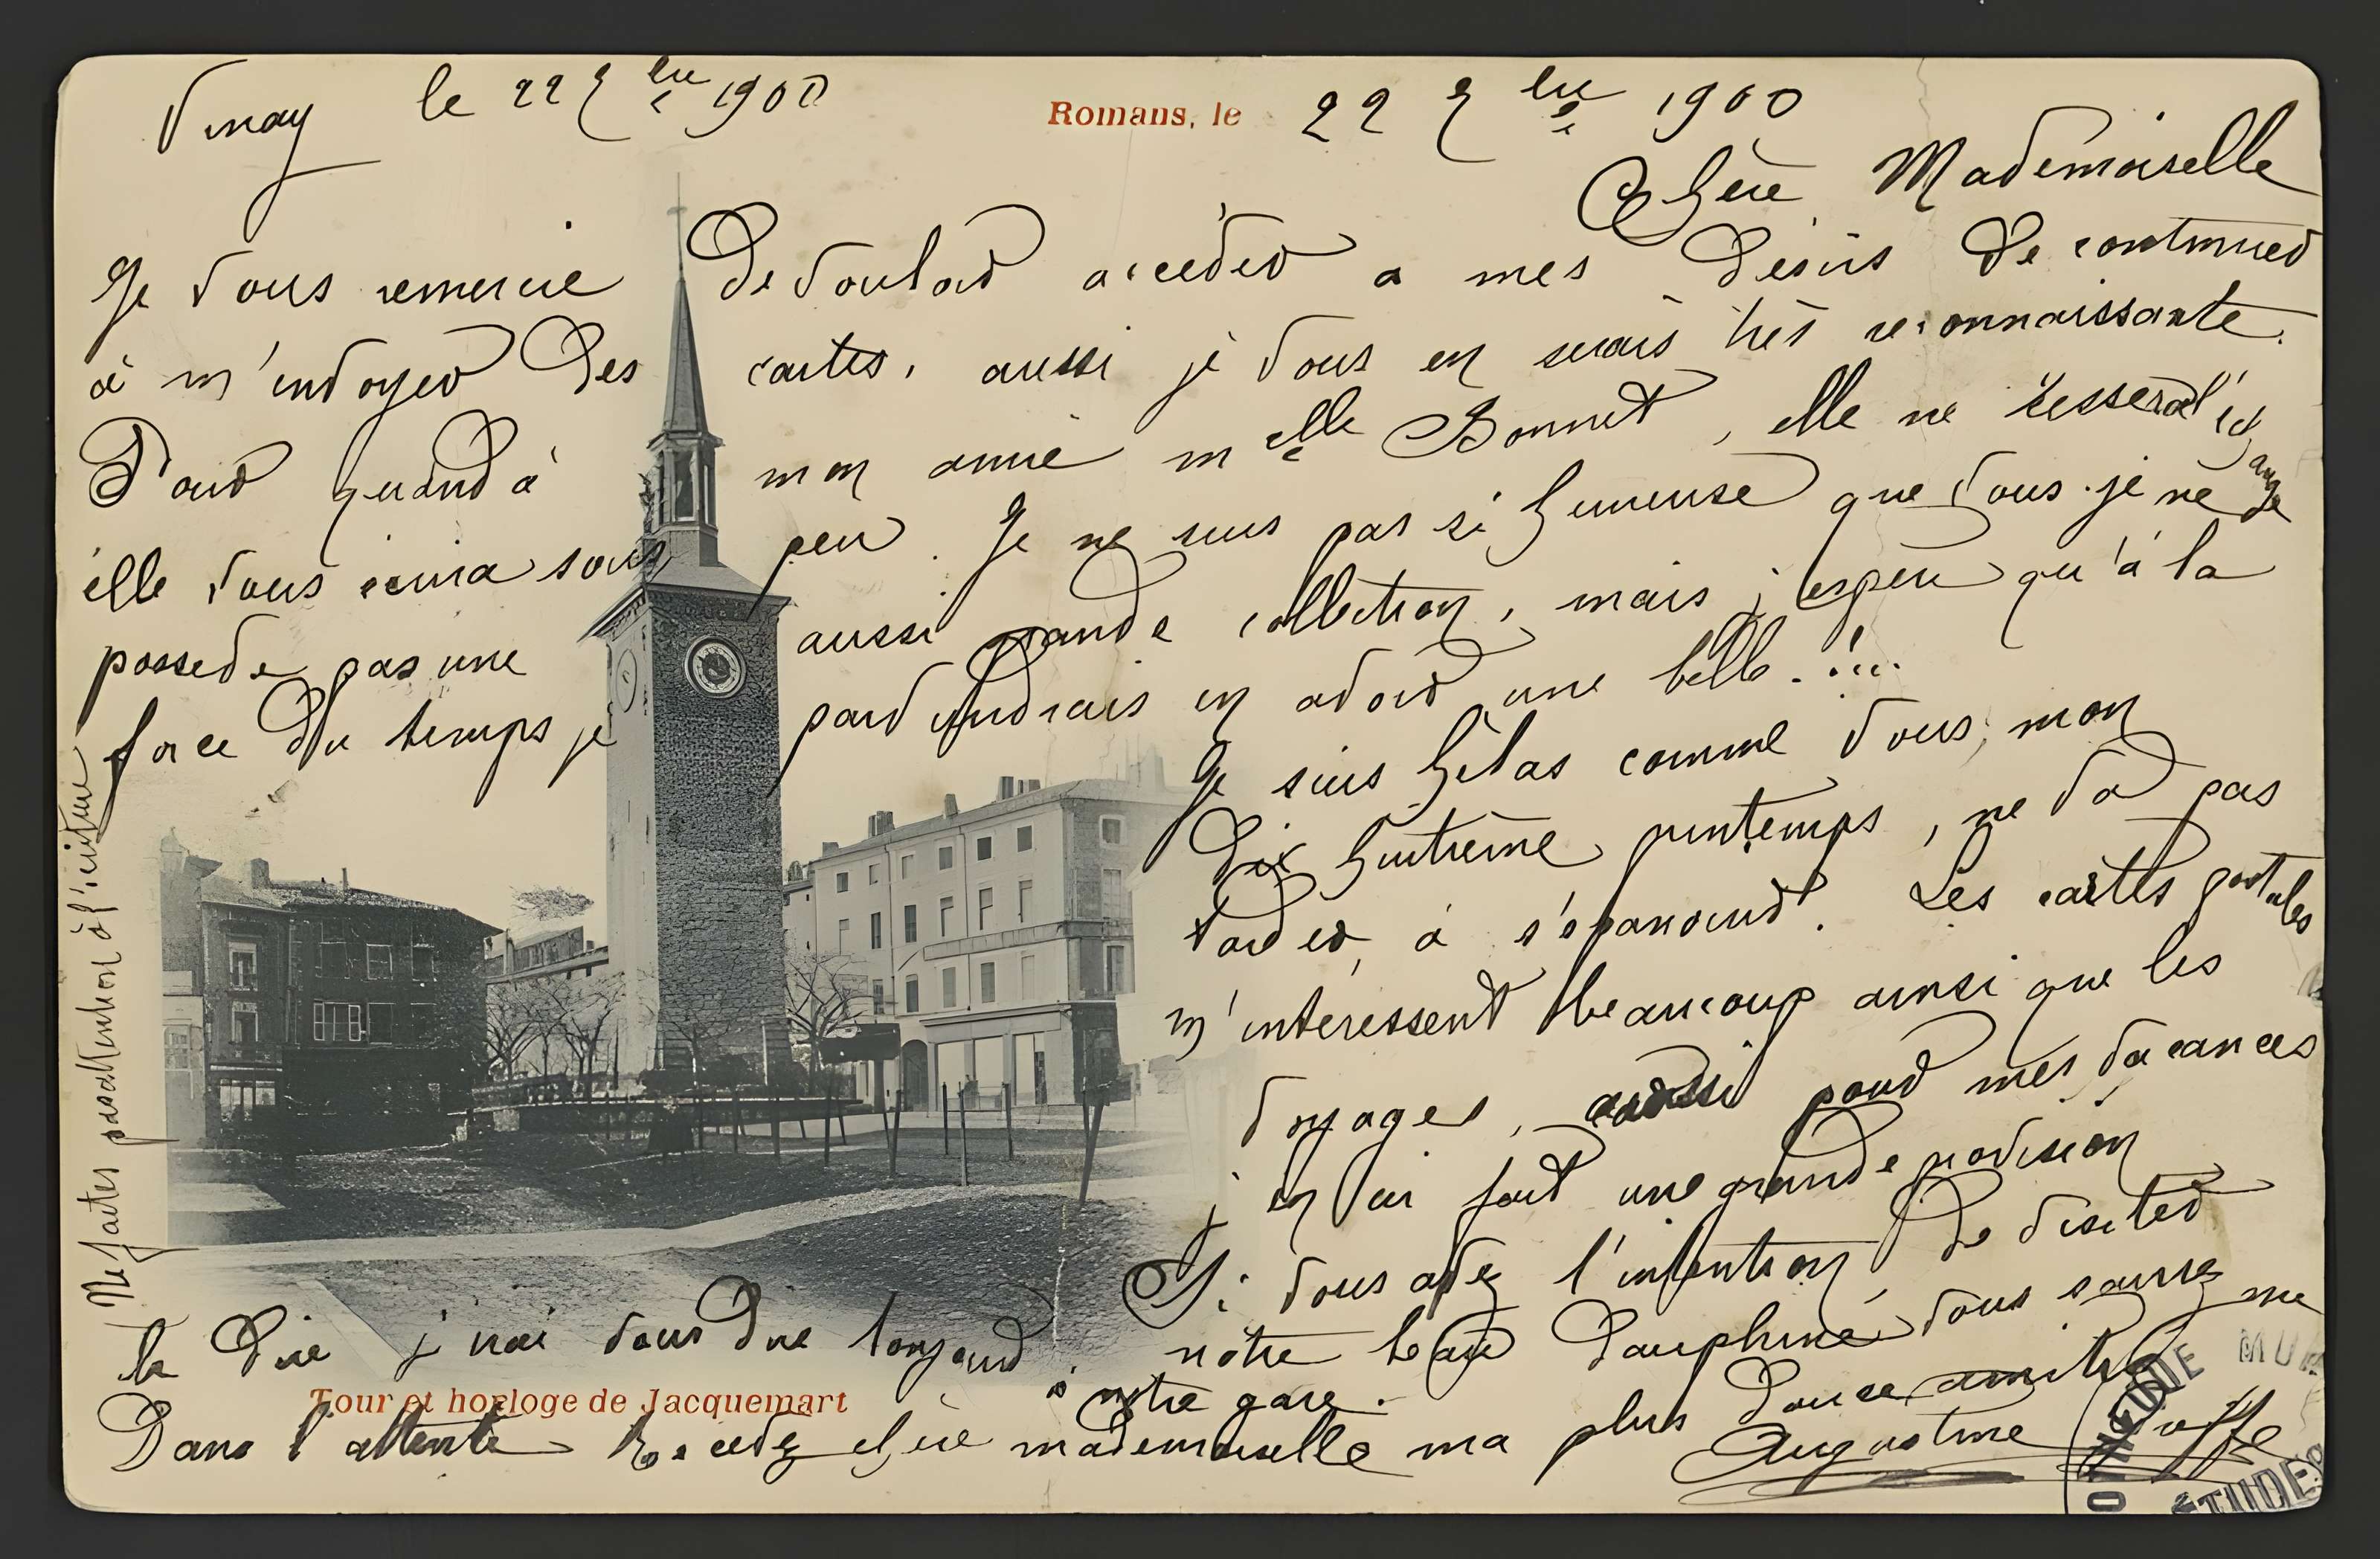 Vinay le 22 7bre 1900
Romans, le 22 7bre 1900
Chère Mademoiselle
Je vous remercie de vouloir acceder a mes desirs de continuer
à m'envoyer des cartes, aussi je vous en serais très reconnaissante.
Pour quand à mon amie Melle Bonnet, elle ne cessera l'échange
elle vous ecrira sous peu. Je ne suis pas si heureuse que vous je ne
possede pas une aussi grande collection, mais j'espère qu'à la
force du temps je parviendrais en avoir une belle.!...
Je suis hélas comme vous, mon
dix huitième printemps, ne va pas
tarder, à s'épanouir. Les cartes postales
m'interessent beaucoup ainsi que les
voyages, aussi pour mes vacances
j'en ai fait une grande provision
Si vous avez l'intention de visiter
notre beau Dauphiné vous saurez me
le dire j'irai vous dire bonjour
à notre gare.
Tour et horloge de Jacquemart
Dans l'attente Recevez chère mademoiselle ma plus douce amitié
Augustine
Ne faites pas attention à l'écriture
MU
ETUDES